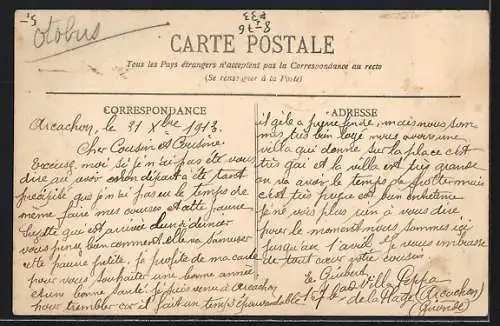 5.-
otobus
8-76
P33
CARTE POSTALE
Tous les Pays étrangers n'acceptent pas la Correspondance au recto
(Se renseigner à la Poste)
CORRESPONDANCE
Arcachon, le 31 Xbre 1913.
Cher Cousin et Cousine
Excuse moi si je n'ai pas été vous
dire au revoir mon départ a été tant
précipité que je n'ai pas eu le temps de
même faire mes courses et cette pauvre
qui est arrivée lundi dernier
vous pensez bien comment elle va s'amuser
cette pauvre petite. je profite de ma carte
pour vous souhaiter une bonne année
et une bonne santé je suis venu à Arcachon
pour trembler car il fait un temps épouvantable
ADRESSE
il gèle a pierre fendre, mais nous som-
mes très bien logé nous avons une
villa qui donne sur la place c'est
très gai et la villa est très grande
on va avoir le temps de frotter mais
c'est très propre et bien entretenu
je ne vois plus rien à vous dire
pour le moment nous sommes ici
jusqu'en avril et je vous embrasse
de tout cœur votre cousin
Villa Peppa
de la Plage (Arcachon)
(Gironde)